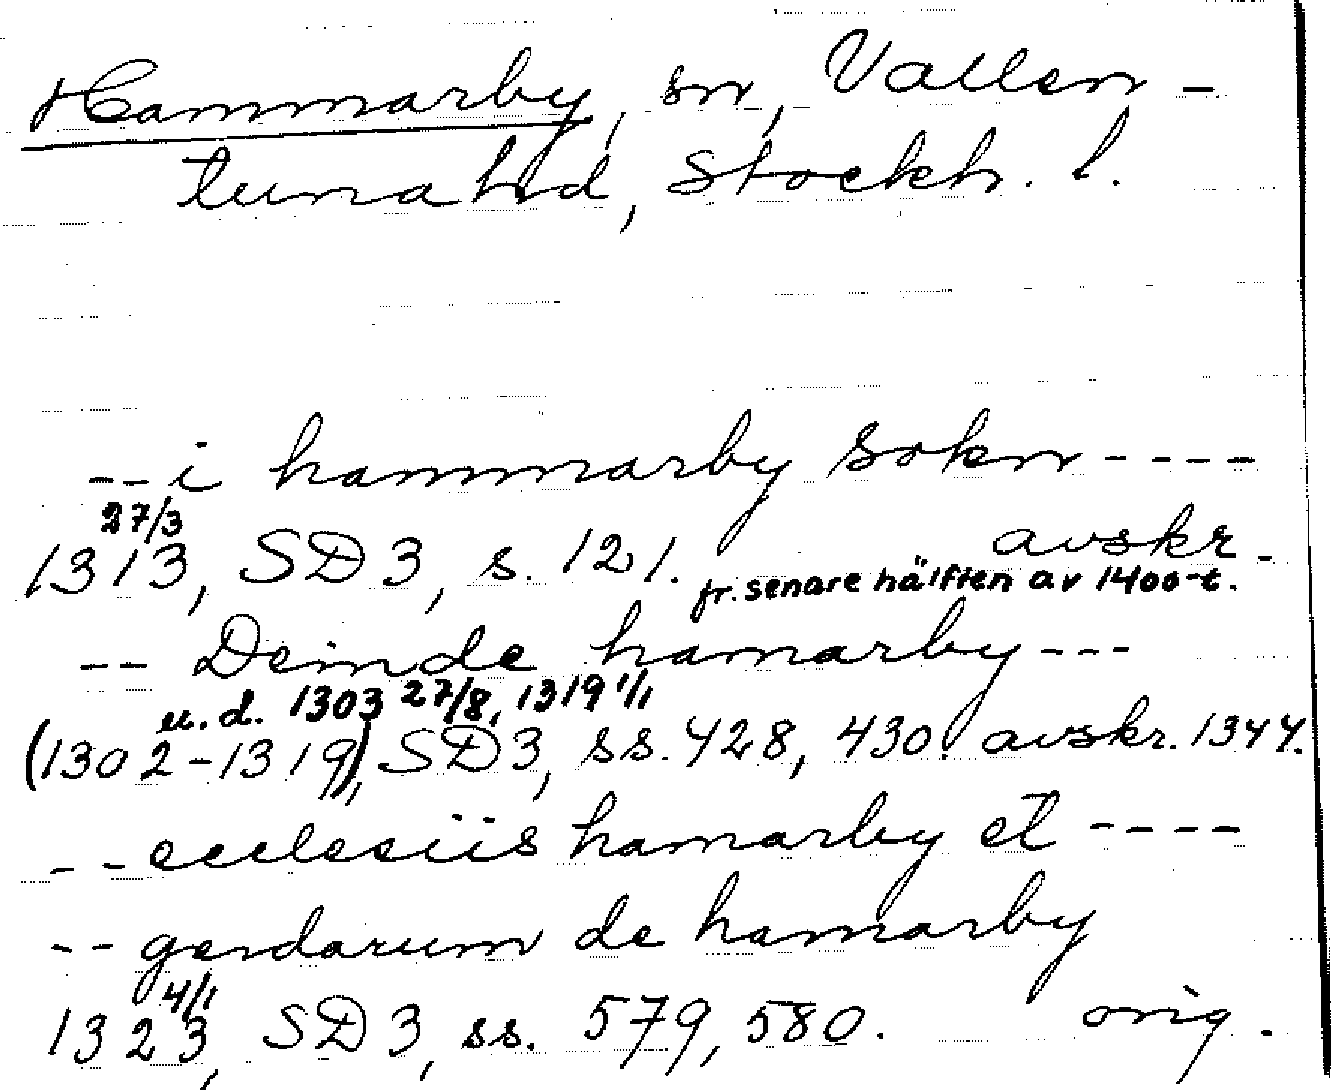 Hammarby, sn, Vallen-
tuna hd, Stockh. l.
--i hammarby sokn----
27/3
1313, SD 3, s. 121. avskr.
fr. senare hälften av 1400-t.
-- Deinde hamarby---
u. d. 1303 27/8, 1319 1/1
(1302-1319), SD 3, ss. 428, 430. avskr. 1344.
--ecclesiis hamarby et ----
--gerdarum de hamarby
4/1
1323, SD 3, ss. 579, 580. orig.